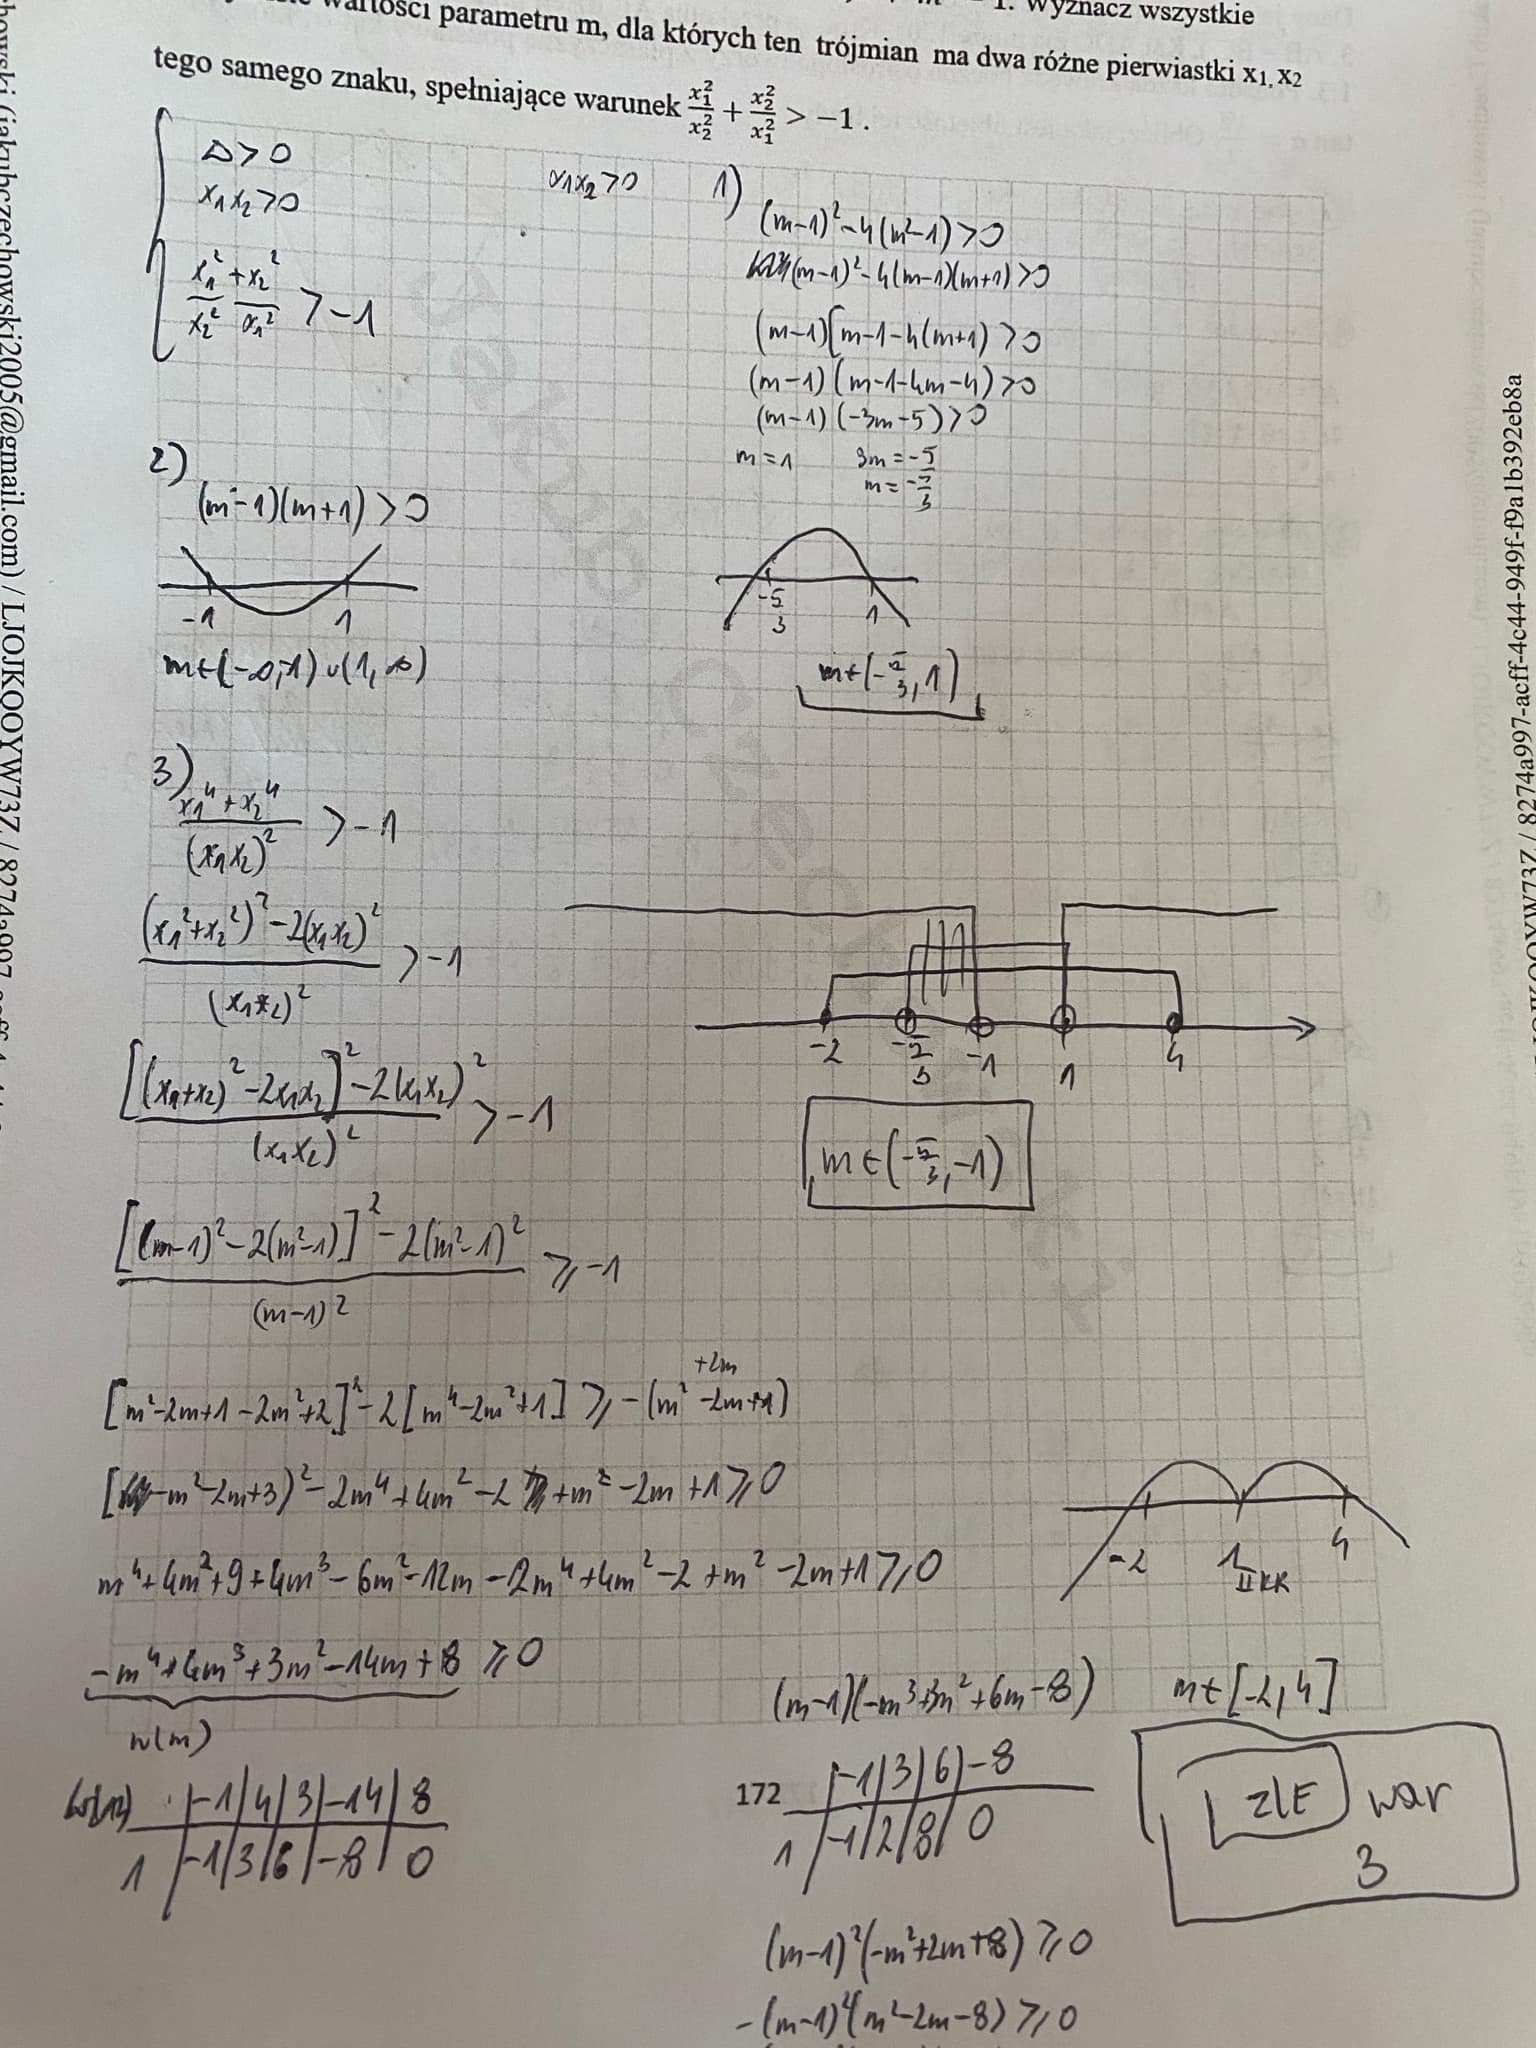 wartości parametru m, dla których ten trójmian ma dwa różne pierwiastki x₁, x₂
1. Wyznacz wszystkie
tego samego znaku, spełniające warunek x₁²/x₂² + x₂²/x₁² > −1.
Δ>0
x₁x₂>0
x₁²/x₂² + x₂²/x₁² > −1
x₁x₂>0
1)
(m−1)²−4(m²−1)>0
(m−1)²−4(m−1)(m+1)>0
(m−1)[m−1−4(m+1)>0
(m−1)(m−1−4m−4)>0
(m−1)(−3m−5)>0
m=1 3m=−5
m=−5/3
−5/3 1
m∈(−5/3, 1)
2)
(m−1)(m+1)>0
−1 1
m∈(−∞,−1)∪(1,∞)
3)
(x₁⁴+x₂⁴)/(x₁x₂)² > −1
((x₁²+x₂²)²−2(x₁x₂)²)/(x₁x₂)² > −1
([(x₁+x₂)²−2x₁x₂]²−2(x₁x₂)²)/(x₁x₂)² > −1
([(m−1)²−2(m²−1)]²−2(m²−1)²)/(m−1)² ⩾ −1
−2 −5/3 −1 1 4
m∈(−5/3, −1)
+2m
[m²−2m+1−2m²+2]²−2[m⁴−2m²+1] ⩾ −(m²−2m+1)
[−m²−2m+3)²−2m⁴+4m²−2+m²−2m+1⩾0
m⁴+4m²+9+4m³−6m²−12m−2m⁴+4m²−2+m²−2m+1⩾0
−m⁴+4m³+3m²−14m+8 ⩾0
w(m)
−1 4 3 −14 8
1 −1 3 6 −8 0
−2 1 4
II KR
(m−1)(−m³+3m²+6m−8)
m∈[−2,4]
172
−1 3 6 −8
1 −1 2 8 0
ZLE war
3
(m−1)²(−m²+2m+8)⩾0